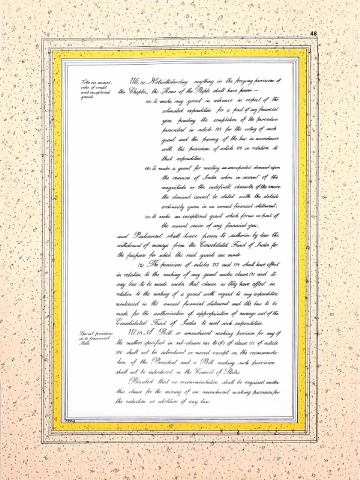 48
Votes on account,
votes of credit
and exceptional
grants.
116. (1) Notwithstanding anything in the foregoing provisions of
this Chapter, the House of the People shall have power—
(a) to make any grant in advance in respect of the
estimated expenditure for a part of any financial
year pending the completion of the procedure
prescribed in article 113 for the voting of such
grant and the passing of the law in accordance
with the provisions of article 114 in relation to
that expenditure;
(b) to make a grant for meeting an unexpected demand upon
the resources of India when on account of the
magnitude or the indefinite character of the service
the demand cannot be stated with the details
ordinarily given in an annual financial statement;
(c) to make an exceptional grant which forms no part of
the current service of any financial year;
and Parliament shall have power to authorise by law the
withdrawal of moneys from the Consolidated Fund of India for
the purposes for which the said grants are made.
(2) The provisions of articles 113 and 114 shall have effect
in relation to the making of any grant under clause (1) and to
any law to be made under that clause as they have effect in
relation to the making of a grant with regard to any expenditure
mentioned in the annual financial statement and the law to be
made for the authorisation of appropriation of moneys out of the
Consolidated Fund of India to meet such expenditure.
Special provisions
as to financial
Bills.
117. (1) A Bill or amendment making provision for any of
the matters specified in sub-clauses (a) to (f) of clause (1) of article
110 shall not be introduced or moved except on the recommenda-
tion of the President and a Bill making such provision
shall not be introduced in the Council of States:
Provided that no recommendation shall be required under
this clause for the moving of an amendment making provision for
the reduction or abolition of any tax.